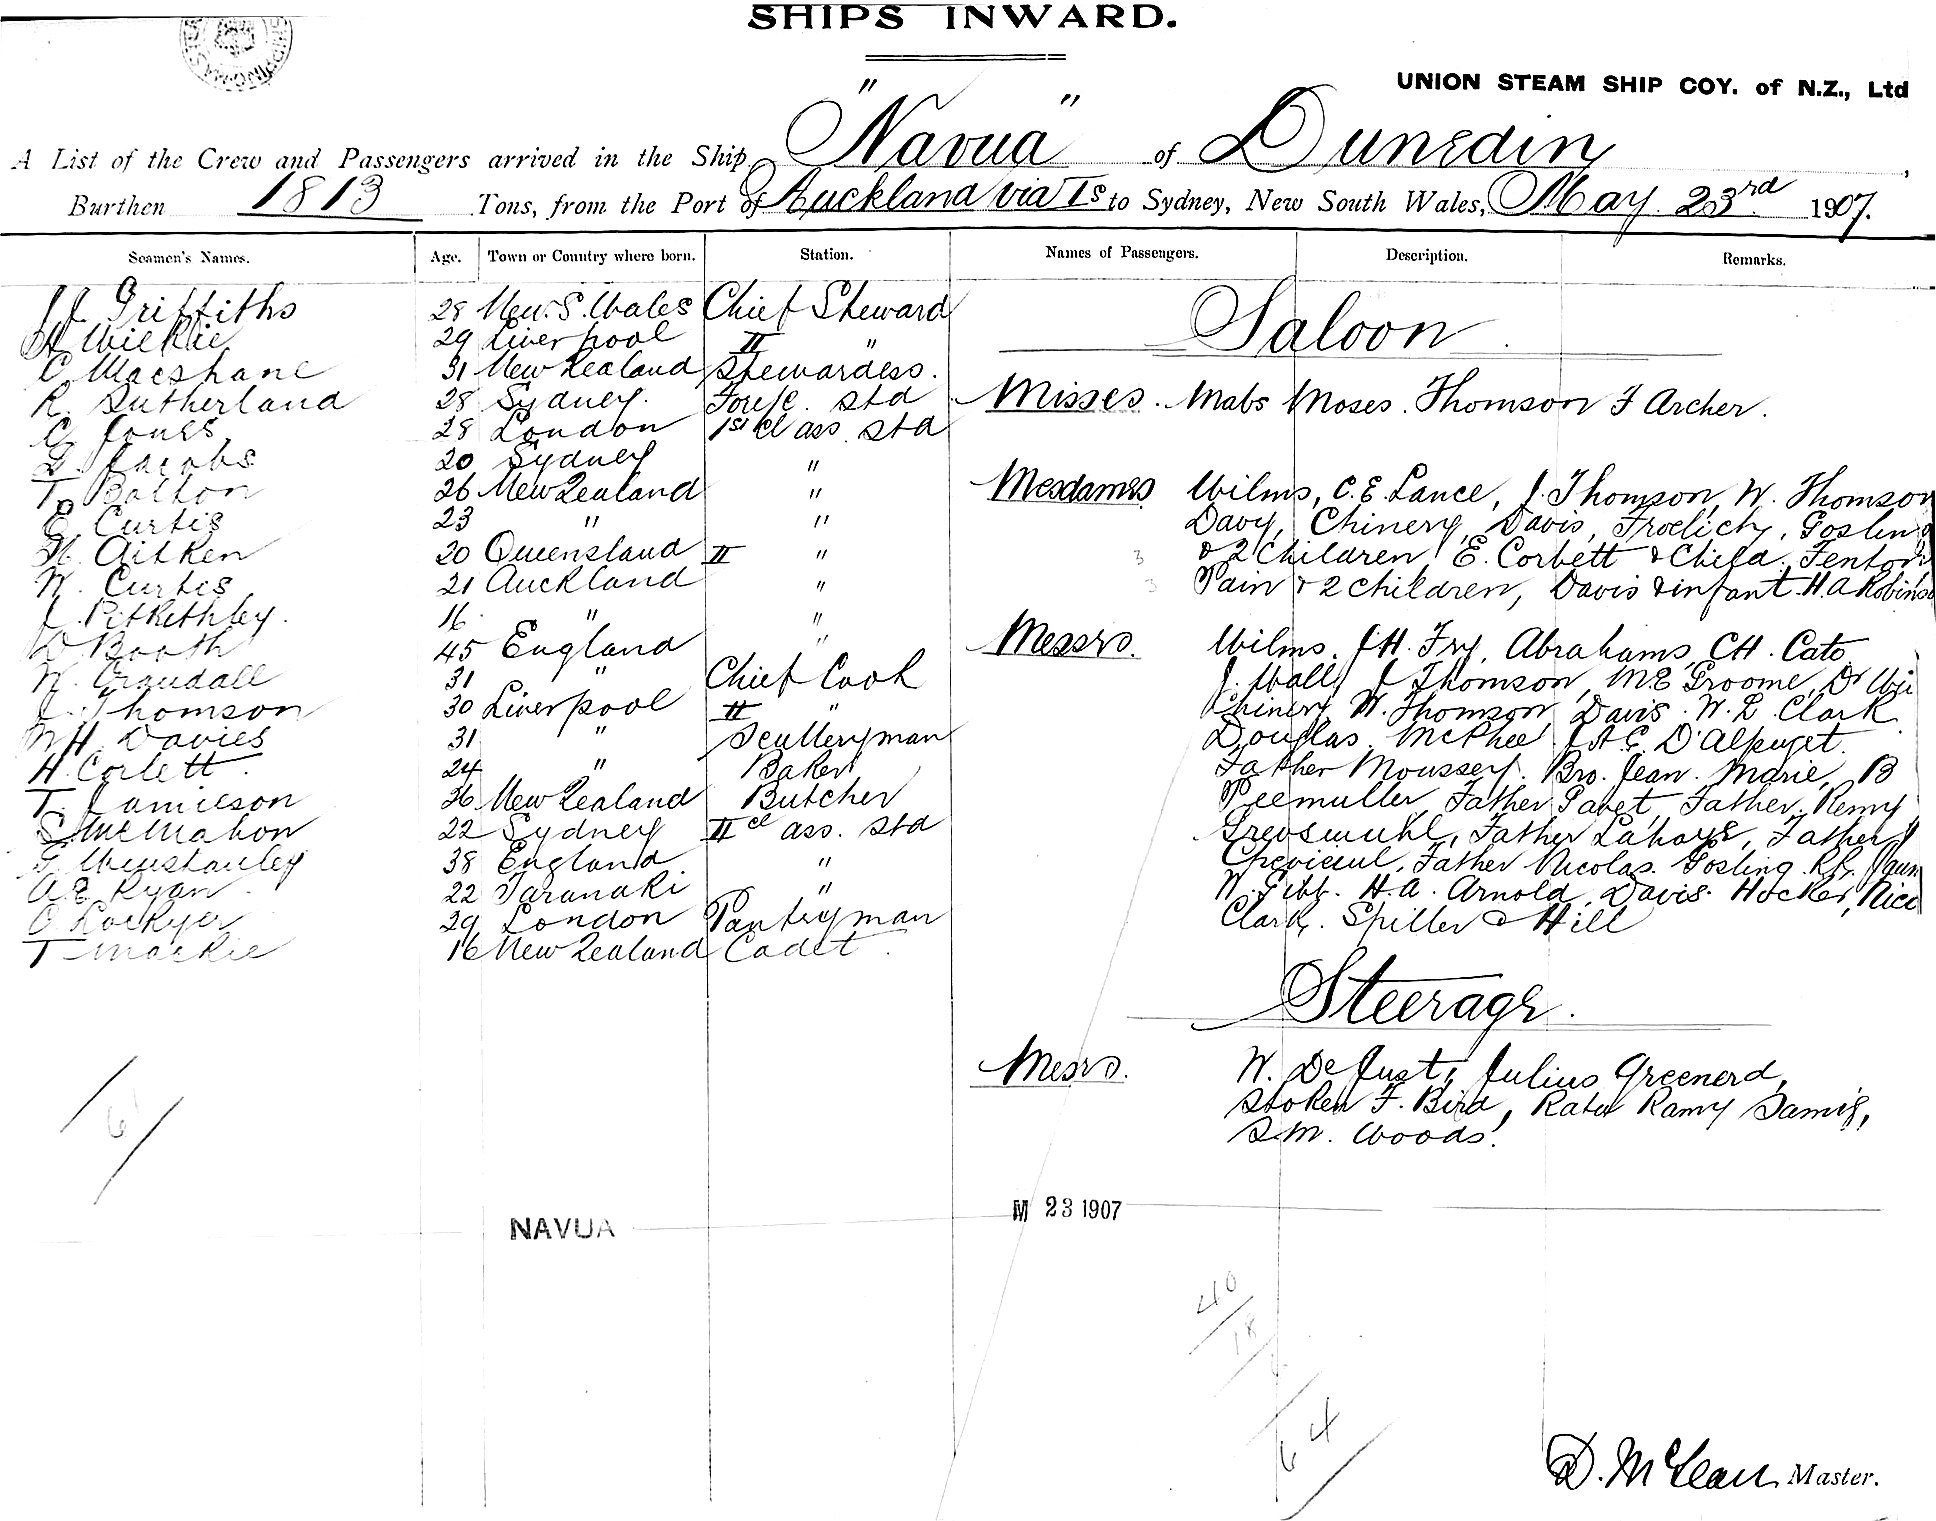 SHIPS INWARD.
UNION STEAM SHIP COY. of N.Z., Ltd
A List of the Crew and Passengers arrived in the Ship "Navua" of Dunedin,
Burthen 1813 Tons, from the Port of Auckland via Is to Sydney, New South Wales, May 23rd 1907.
Seamen's Names. Age. Town or Country where born. Station. Names of Passengers. Description. Remarks.
J Griffiths 28 New. S. Wales Chief Steward
29 Liverpool II "
C Macshane 31 New Zealand Stewardess.
R. Sutherland 28 Sydney. Fore/c. Std
C Jones 28 London 1st Class Std
Jacobs 20 Sydney "
T Bolton 26 New Zealand "
E Curtis 23 " "
H. Aitken 20 Queensland II "
W. Curtis 21 Auckland "
J. Pitkethley. 16 " "
D Booth 45 England "
W. Crandall 31 " Chief Cook
J. Thomson 30 Liverpool II "
W H Davies 31 " Scullery man
H. Corlett. 24 " Baker
T. Jamieson 36 New Zealand Butcher
S McMahon 22 Sydney II class. Std
G Winstanley 38 England "
A E Ryan 22 Taranaki "
C Lockyer 29 London Pantryman
T Mackie 16 New Zealand Cadet.
Saloon
Misses. Mabs Moses. Thomson F Archer.
Mesdames Wilms, C. E. Lance, J. Thomson, W. Thomson
Davy, Chinery, Davis, Froelich, Gosling
& 2 Children E. Corbett & Child, Fenton
Pain & 2 Children, Davis & infant. H. A Robinso
Messrs. Wilms. J H. Fry, Abrahams, C H. Cato
J. Wall J Thomson, M. E Groome, Dr
Chinery W. Thomson Davis. W. L. Clark
Douglas. McPhee J. A. C. D'Alpuget.
Father Moussey. Bro. Jean. Marie, B
Peemuller, Father Pavet, Father. Remy
Father Lahaye, Father
Father Nicolas. Gosling.
W. Gibb. H. A. Arnold, Davis. Hocker,
Clark. Spiller & Hill
Steerage.
Messrs. W. De Just, Julius Greenerd,
Stoken F. Bird, Ratu Ramy Samis,
S. M. Woods.
NAVUA
M 23 1907
40
18
6
64
D. McLean Master.